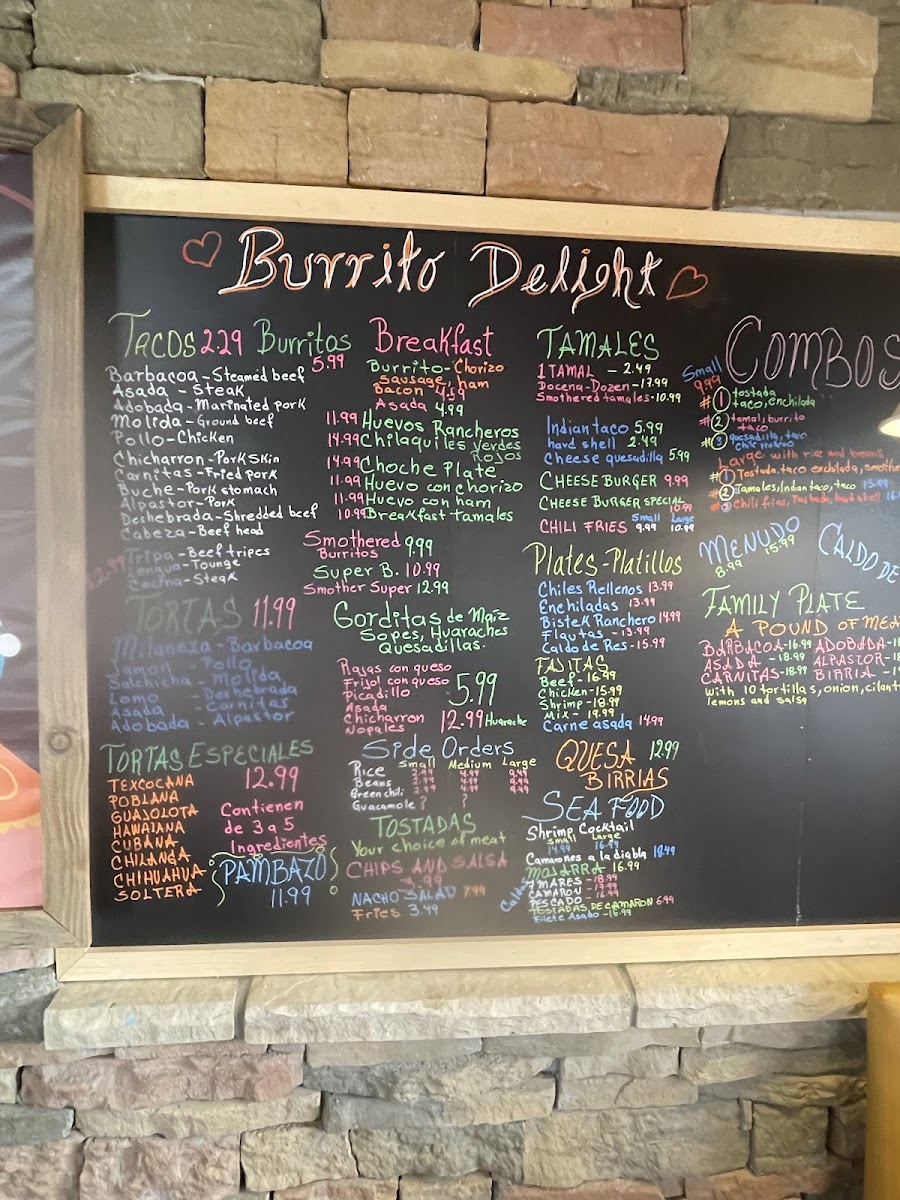 Burrito Delight
TACOS 2.29 Burritos 5.99
Barbacoa - Steamed beef
Asada - Steak
Adobada - Marinated pork
Molida - Ground beef
Pollo - Chicken
Chicharron - Pork Skin
Carnitas - Fried pork
Buche - Pork stomach
Alpastor - Pork
Deshebrada - Shredded beef
Cabeza - Beef head
Tripa - Beef tripes
Lengua - Tounge
Cecina - Steak
TORTAS 11.99
Milaneza - Barbacoa
Jamon - Pollo
Salchicha - Molida
Lomo - Deshebrada
Asada - Carnitas
Adobada - Alpastor
TORTAS ESPECIALES
12.99
TEXCOCANA
POBLANA
GUAJOLOTA
HAWAIANA
CUBANA
CHILANGA
CHIHUAHUA
SOLTERA
Contienen
de 3 a 5
Ingredientes
PAMBAZO
11.99
Breakfast
Burrito - Chorizo
Sausage, ham
Bacon 4.59
Asada 4.99
11.99 Huevos Rancheros
14.99 Chilaquiles Verdes
Rojos
14.99 Choche Plate
11.99 Huevo con chorizo
11.99 Huevo con ham
10.99 Breakfast tamales
Smothered
Burritos 9.99
Super B. 10.99
Smother Super 12.99
Gorditas de Maíz
Sopes, Huaraches
Quesadillas.
Rajas con queso
Frijol con queso
Picadillo 5.99
Asada
Chicharron 12.99 Huarache
Nopales
Side Orders
Small Medium Large
Rice 2.99 4.99 9.49
Beans 2.99 4.99 9.49
Green chili 2.99 4.99 9.49
Guacamole ? ?
TOSTADAS
Your choice of meat
CHIPS AND SALSA
NACHO SALAD 7.99
Fries 3.49
TAMALES
1 TAMAL - 2.49
Docena-Dozen - 17.99
Smothered tamales - 10.99
Indian taco 5.99
hard shell 2.49
Cheese quesadilla 5.99
CHEESE BURGER 9.99
CHEESE BURGER SPECIAL
10.99
CHILI FRIES Small 9.99 Large 10.99
Plates - Platillos
Chiles Rellenos 13.99
Enchiladas 13.99
Bistek Ranchero 14.99
Flautas - 13.99
Caldo de Res - 15.99
FAJITAS
Beef - 16.99
Chicken - 15.99
Shrimp - 18.99
Mix - 19.99
Carne asada 14.99
QUESA 12.99
BIRRIAS
SEA FOOD
Shrimp Cocktail
Small Large
14.99 16.99
Camarones a la diabla 18.49
MOJARRA 16.99
Caldos
7 MARES - 18.99
CAMARON - 17.99
PESCADO - 16.99
TOSTADAS DE CAMARON 6.99
Filete Asado - 16.99
COMBOS
Small
9.99
#1 tostada
taco, enchilada
#2 tamal, burrito
taco
#3 quesadilla, taco
chile relleno
Large with rice and beans
#1 Tostada, taco enchilada, smother
#2 Tamales, Indian taco, taco 15.99
#3 Chili fries, Tostada, hard shell 16
MENUDO
8.99 15.99
CALDO DE
FAMILY PLATE
A POUND OF MEA
BARBACOA - 16.99 ADOBADA - 1
ASADA - 18.99 ALPASTOR - 1
CARNITAS - 18.99 BIRRIA - 1
with 10 tortillas, onion, cilant
lemons and salsa